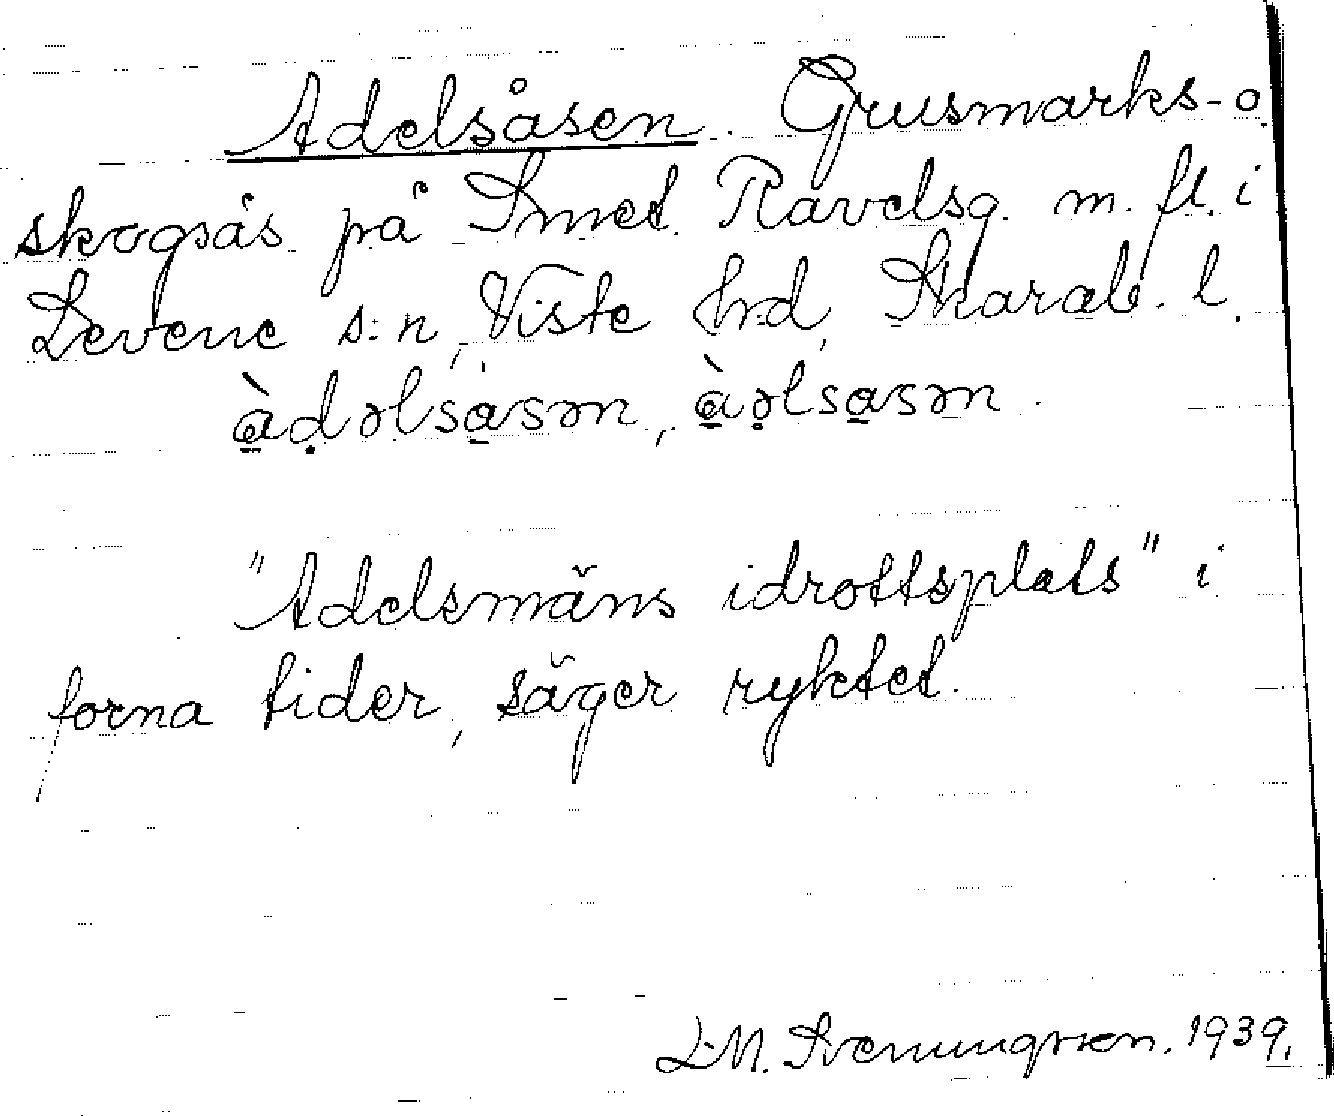 Adelsåsen. Grusmarks- o.
skogsås på Smet. Ravelsg. m. fl. i
Levene s:n, Viste hrd, Skarab. l.
àdəlsasən, àəlsasən.
"Adelsmäns idrottsplats" i
forna tider, säger ryktet.
L.M. Svenungsson. 1939.